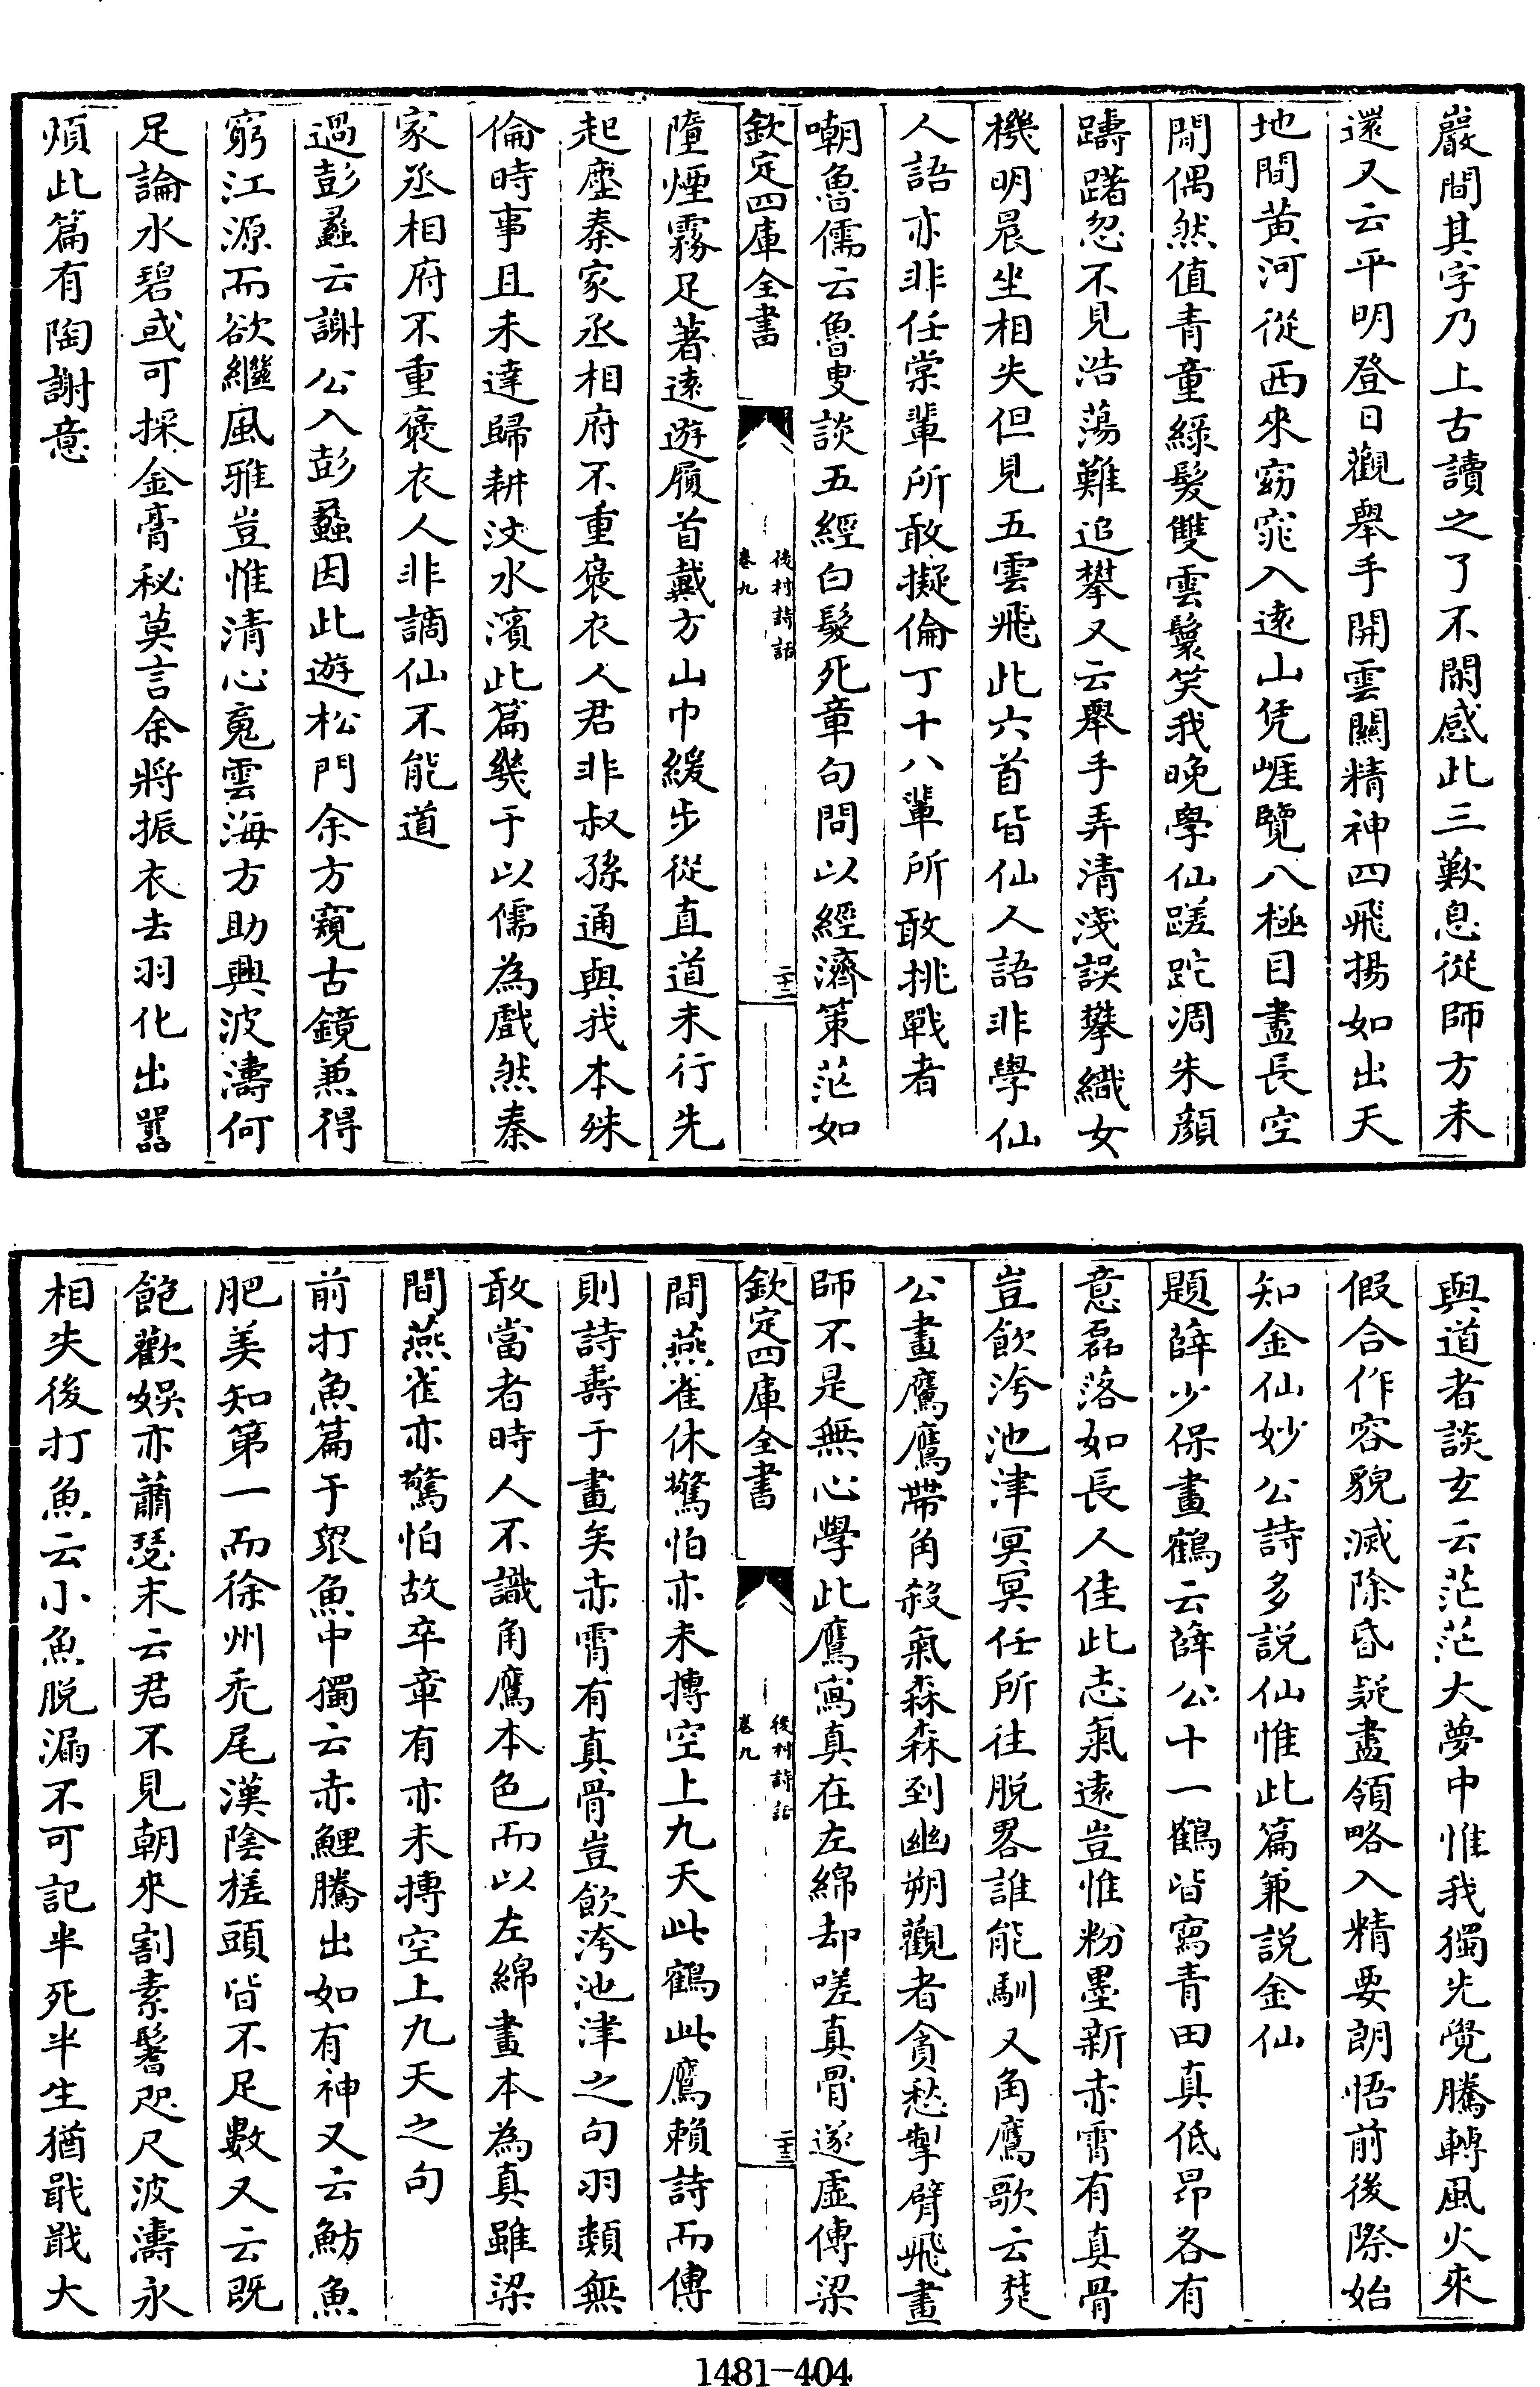 巖間其字乃上古讀之了不閑感此三歎息從師方未
還又云平明登日觀舉手開雲關精神四飛揚如出天
地間黄河從西來窈窕入遠山凭崕覽八極目盡長空
閒偶然值青童綠髪雙雲鬟笑我晚學仙蹉跎凋朱顔
躊躇忽不見浩蕩難追攀又云舉手弄清淺誤攀織女
機明晨坐相失但見五雲飛此六首皆仙人語非學仙
人語亦非任棠輩所敢擬倫丁十八輩所敢挑戰者
嘲魯儒云魯叟談五經白髪死章句問以經濟策茫如
欽定四庫全書
後村詩話
卷九
二十二
墮煙霧足著遠遊履首戴方山巾緩步從直道未行先
起塵秦家丞相府不重褒衣人君非叔孫通與我本殊
倫時事且未達歸耕汶水濱此篇幾于以儒為戲然秦
家丞相府不重褒衣人非謫仙不能道
過彭蠡云謝公入彭蠡因此遊松門余方窺古鏡兼得
窮江源而欲繼風雅豈惟清心䰟雲海方助興波濤何
足論水碧或可採金膏秘莫言余將振衣去羽化出囂
煩此篇有陶謝意
與道者談玄云茫茫大夢中惟我獨先覺騰轉風火來
假合作容貌滅除昏疑盡領略入精要朗悟前後際始
知金仙妙公詩多説仙惟此篇兼説金仙
題薛少保畫鶴云薛公十一鶴皆寫青田真低昂各有
意磊落如長人佳此志氣遠豈惟粉墨新赤霄有真骨
豈飲洿池津冥冥任所往脱畧誰能馴又角鷹歌云楚
公畫鷹鷹帶角殺氣森森到幽朔觀者貪愁掣臂飛畫
師不是無心學此鷹寫真在左綿却嗟真骨遂虛傳梁
欽定四庫全書
後村詩話
卷九
二十三
間燕雀休驚怕亦未摶空上九天此鶴此鷹賴詩而傳
則詩壽于畫矣赤霄有真骨豈飲洿池津之句羽類無
敢當者時人不識角鷹本色而以左綿畫本為真雖梁
間燕雀亦驚怕故卒章有亦未摶空上九天之句
前打魚篇于衆魚中獨云赤鯉騰出如有神又云魴魚
肥美知第一而徐州禿尾漢陰槎頭皆不足數又云既
飽歡娱亦蕭瑟末云君不見朝來割素鬐咫尺波濤永
相失後打魚云小魚脱漏不可記半死半生猶戢戢大
1481-404